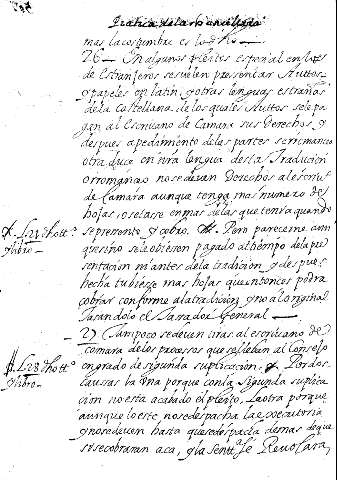 Pratica de la Rl Chancilleria
mas la costumbre es lo dho
26 — En algunos pleitos espeçial en los
de Estranjeros se suelen presentar Auttos
y papeles en latin, y otras lenguas estrañas
de la Castellana de los quales Auttos se le pa
gan al Escrivano de Camara sus Derechos, y
despues a pedimiento de las partes se rromancea
o traduce en nra lengua desta Traducion
o rromançe no se devan Derechos al escriv
de Camara aunque tenga mas numero de
hojas o se tase en mas de las que tenia quando
se presento y cobro. Pero pareceme con
que si no se le obiesen pagado al tiempo de la pre
sentacion ni antes de la tradicion y despues
hecha tubiese mas hojas que entonces podra
cobrar conforme a la tradicion y no al original
tasandolo el Tasador General
27 Tampoco se deven tiras al escrivano de
Camara de los processos que se lleban al Consejo
en grado de segunda suplicacion, Por dos
causas la Una porque con la segunda suplica
cion no esta acabado el pleito, la otra porque
aunque lo este no se despacha la executoria
y no se deven hasta que se despacha demas de que
si se cobraran aca, y la sentta se Revocara,
L. 21 dho tt.º
y libro
L. 28 dho tt.º
y libro